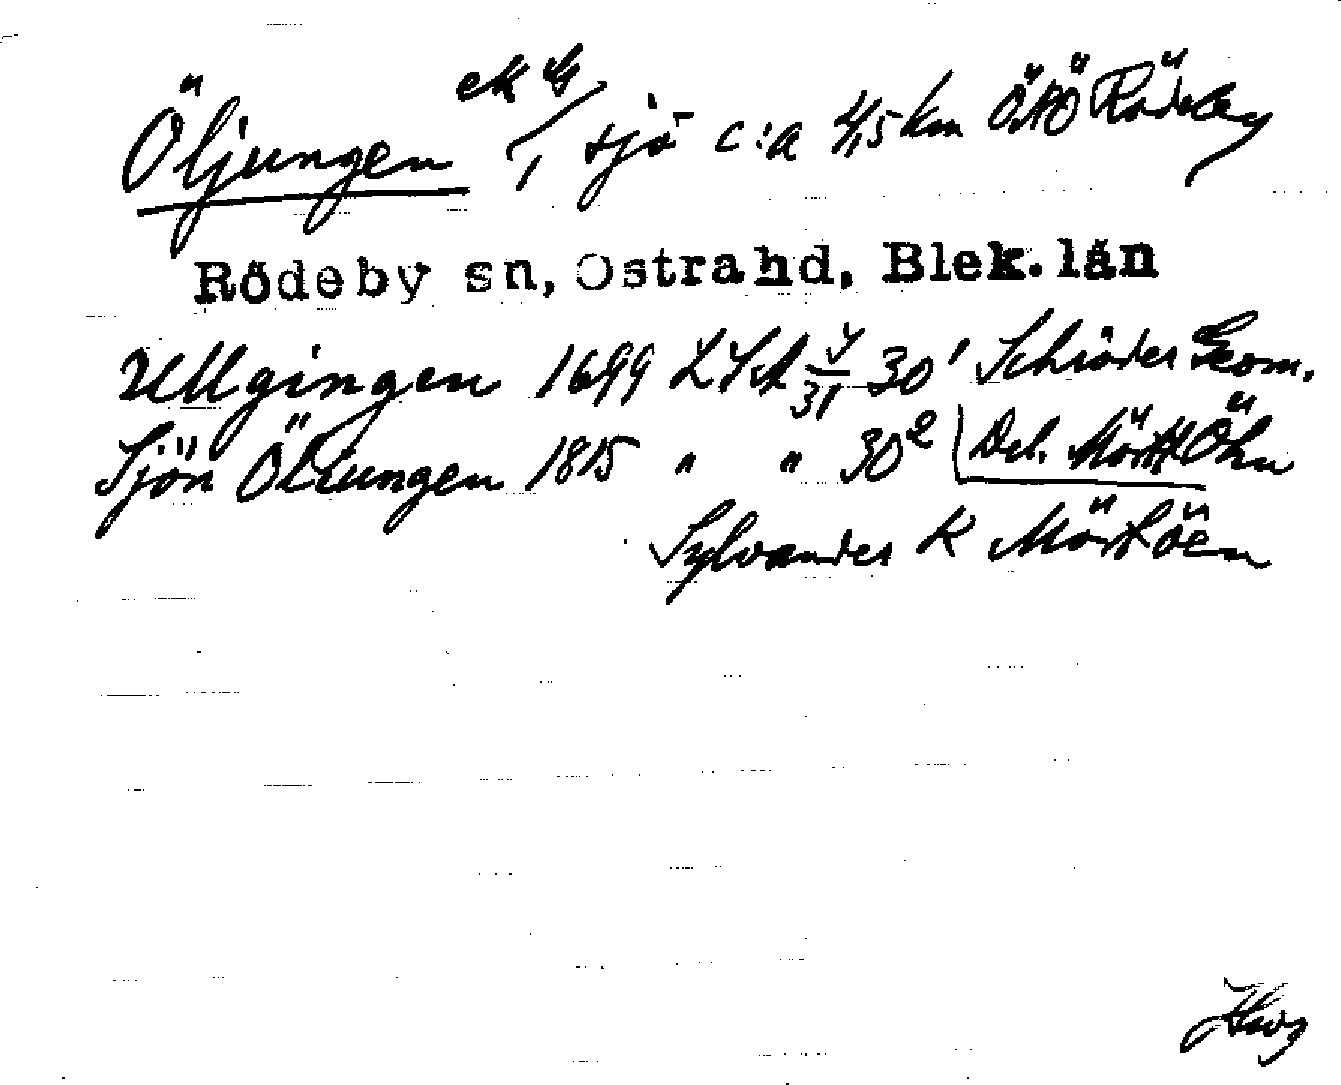 Öljungen sjö c:a 4,5 km ÖNÖ Rödeby
Rödeby sn, Ostra hd, Blek. län
Ullgingen 1699 LSA 30¹ Schröder Geom.
Sjön Öljungen 1815 " " 30² Del. Mört
Sylvander K Mörtöen